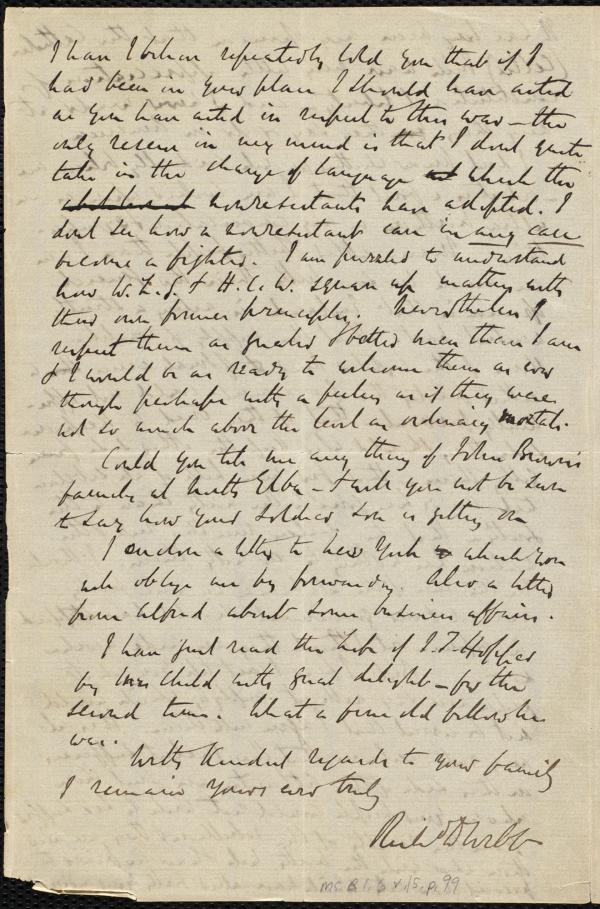 I have I believe repeatedly told you that if I
had been in your place I should have acted
as you have acted in respect to this war – the
only reserve in my mind is that I don't quite
take in the change of language which the
nonresistants have adopted. I
don't see how a nonresistant can in any case
become a fighter. I am puzzled to understand
how W. L. G. & H. C. W. square up matters with
their own former principles. Nevertheless I
respect them as greater & better men than I am
& I would be as ready to welcome them as ever
though perhaps with a feeling as if they were
not so much above the level as ordinary mortals.
Could you tell me any thing of John Brown's
family at North Elba – & will you not be sure
to say how your soldier son is getting on
I enclose a letter to New York which you
will oblige me by forwarding. Also a letter
from Alfred about some business affairs.
I have just read the Life of I. T. Hopper
by Mrs Child with great delight – for the
second time. What a fine old fellow he
was.
With kindest regards to your family
I remain yours ever truly
Richd D Webb
Ms. B. 1. 6 v. 15, p. 99